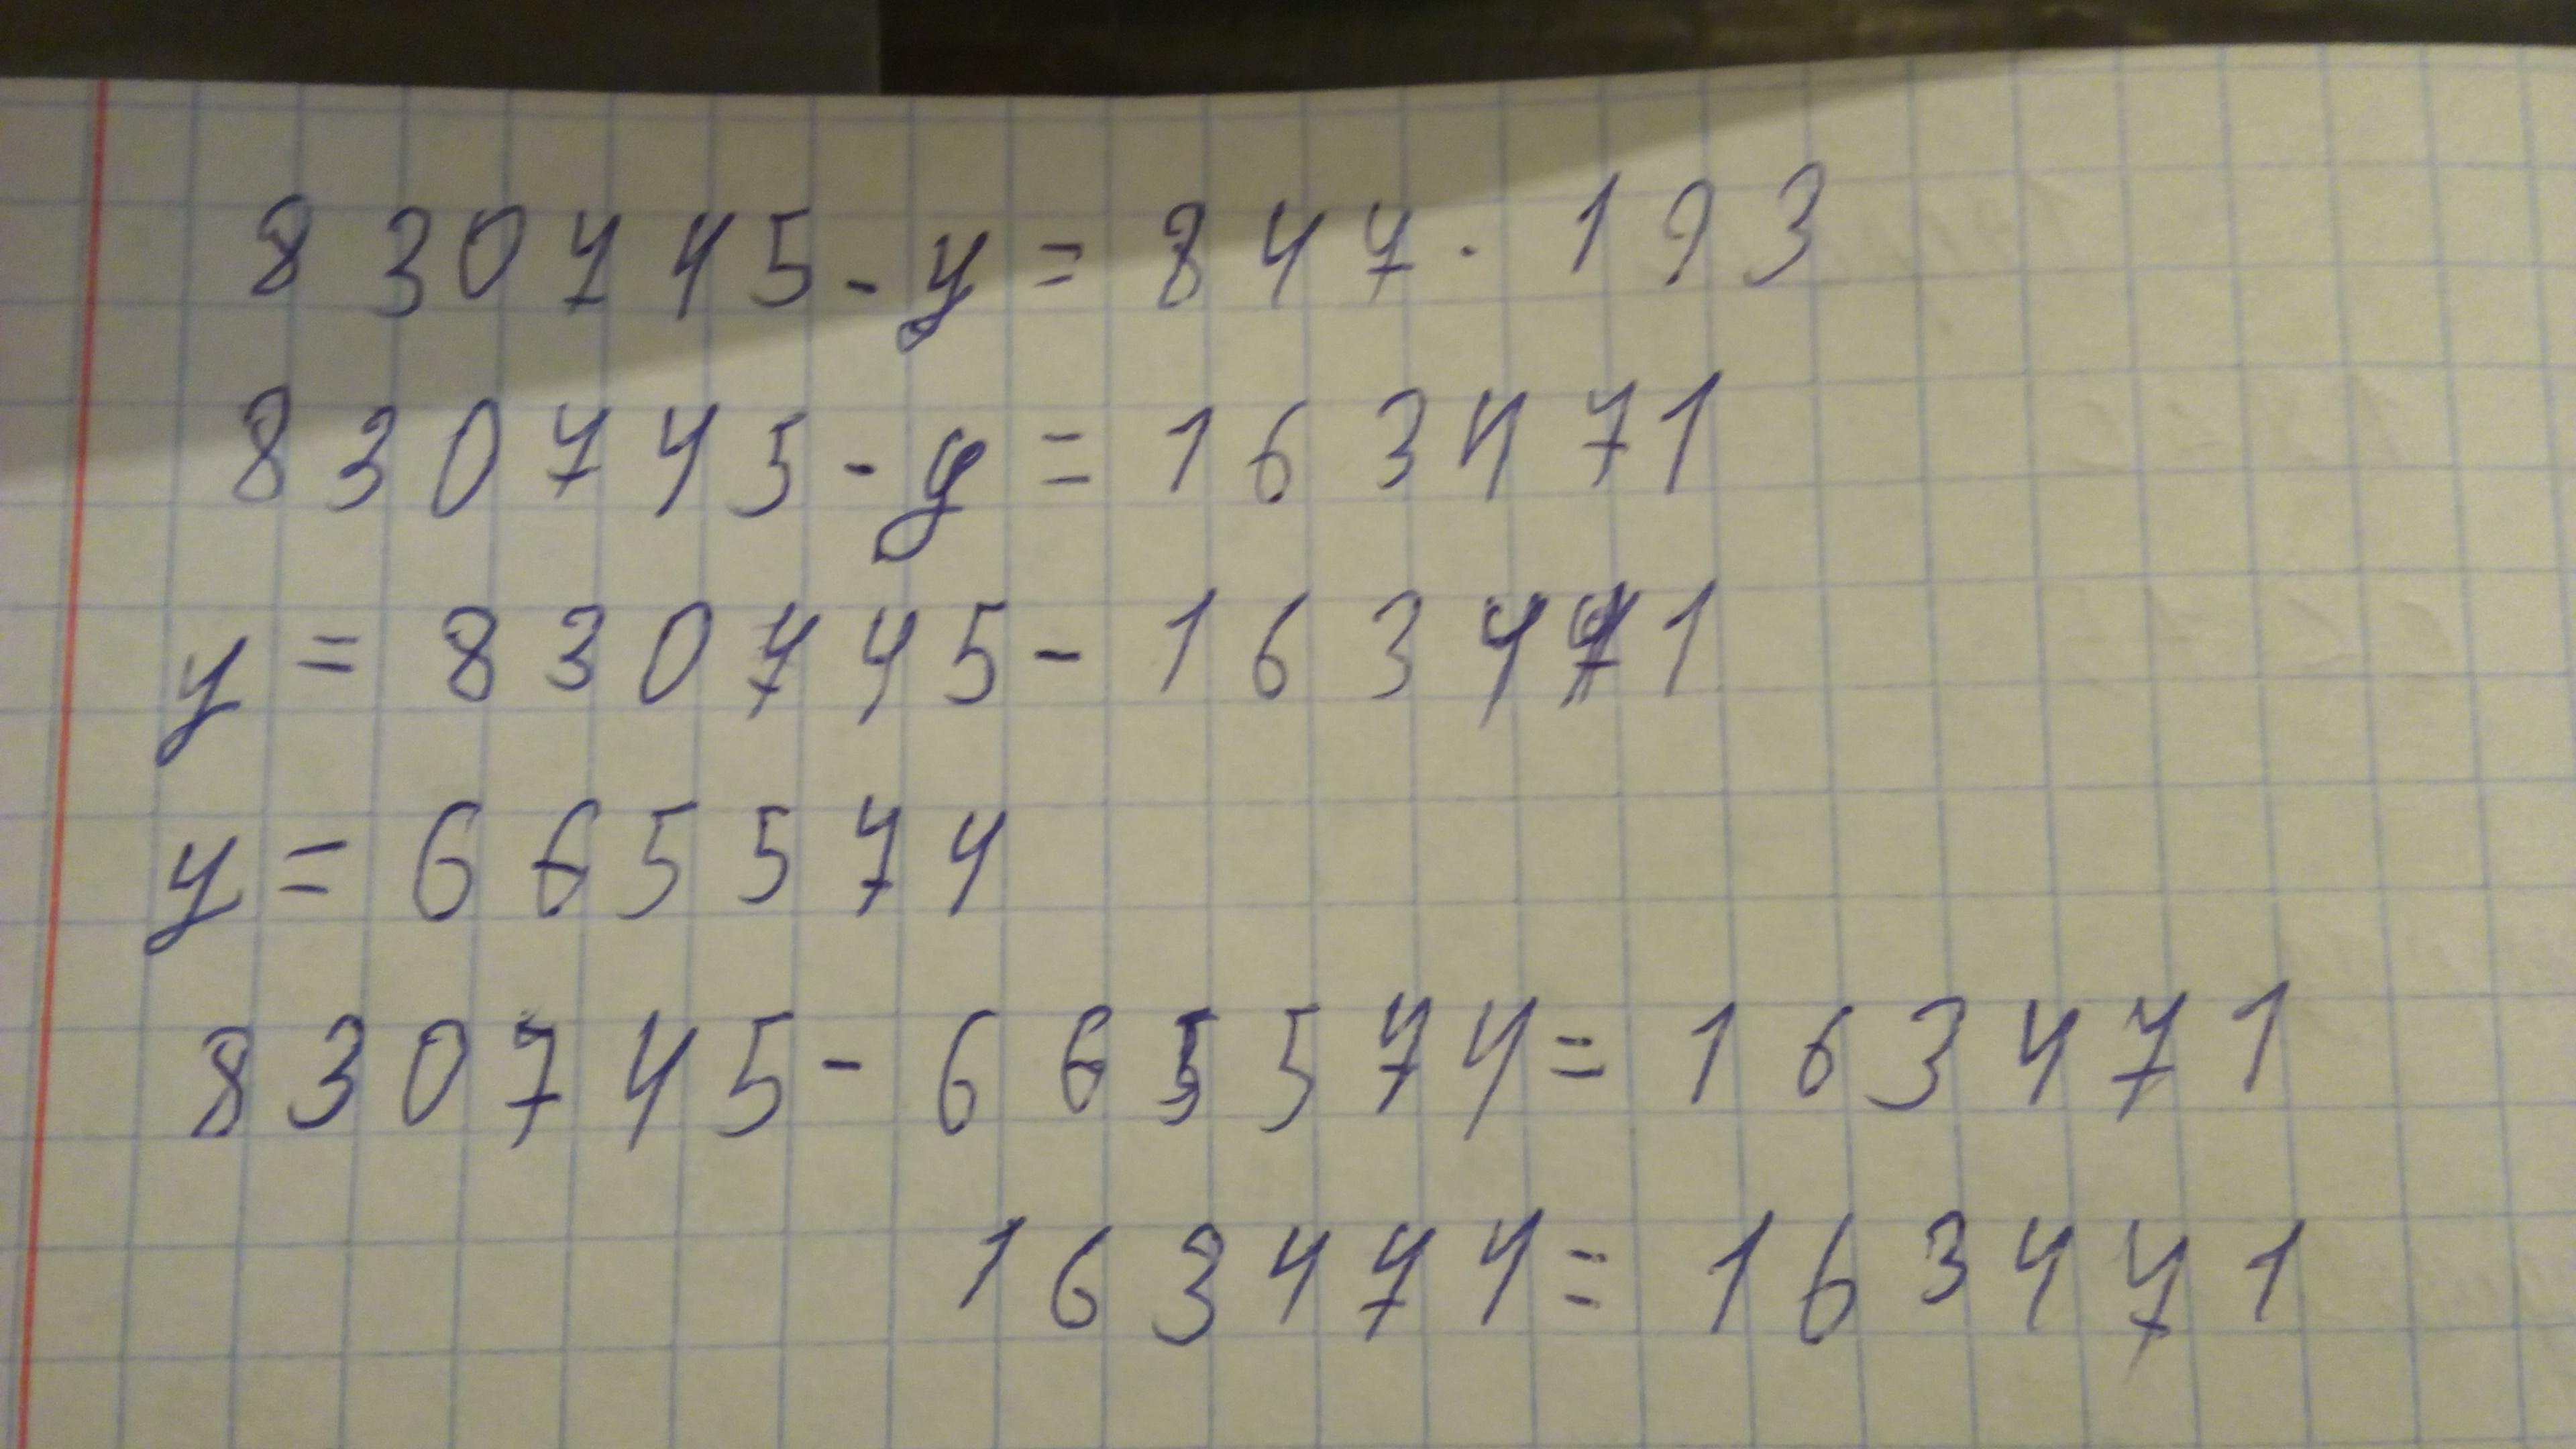 830745-y=847·193
830745-y=163471
y=830745-163471
y=665574
830745-665574=163471
163471=163471